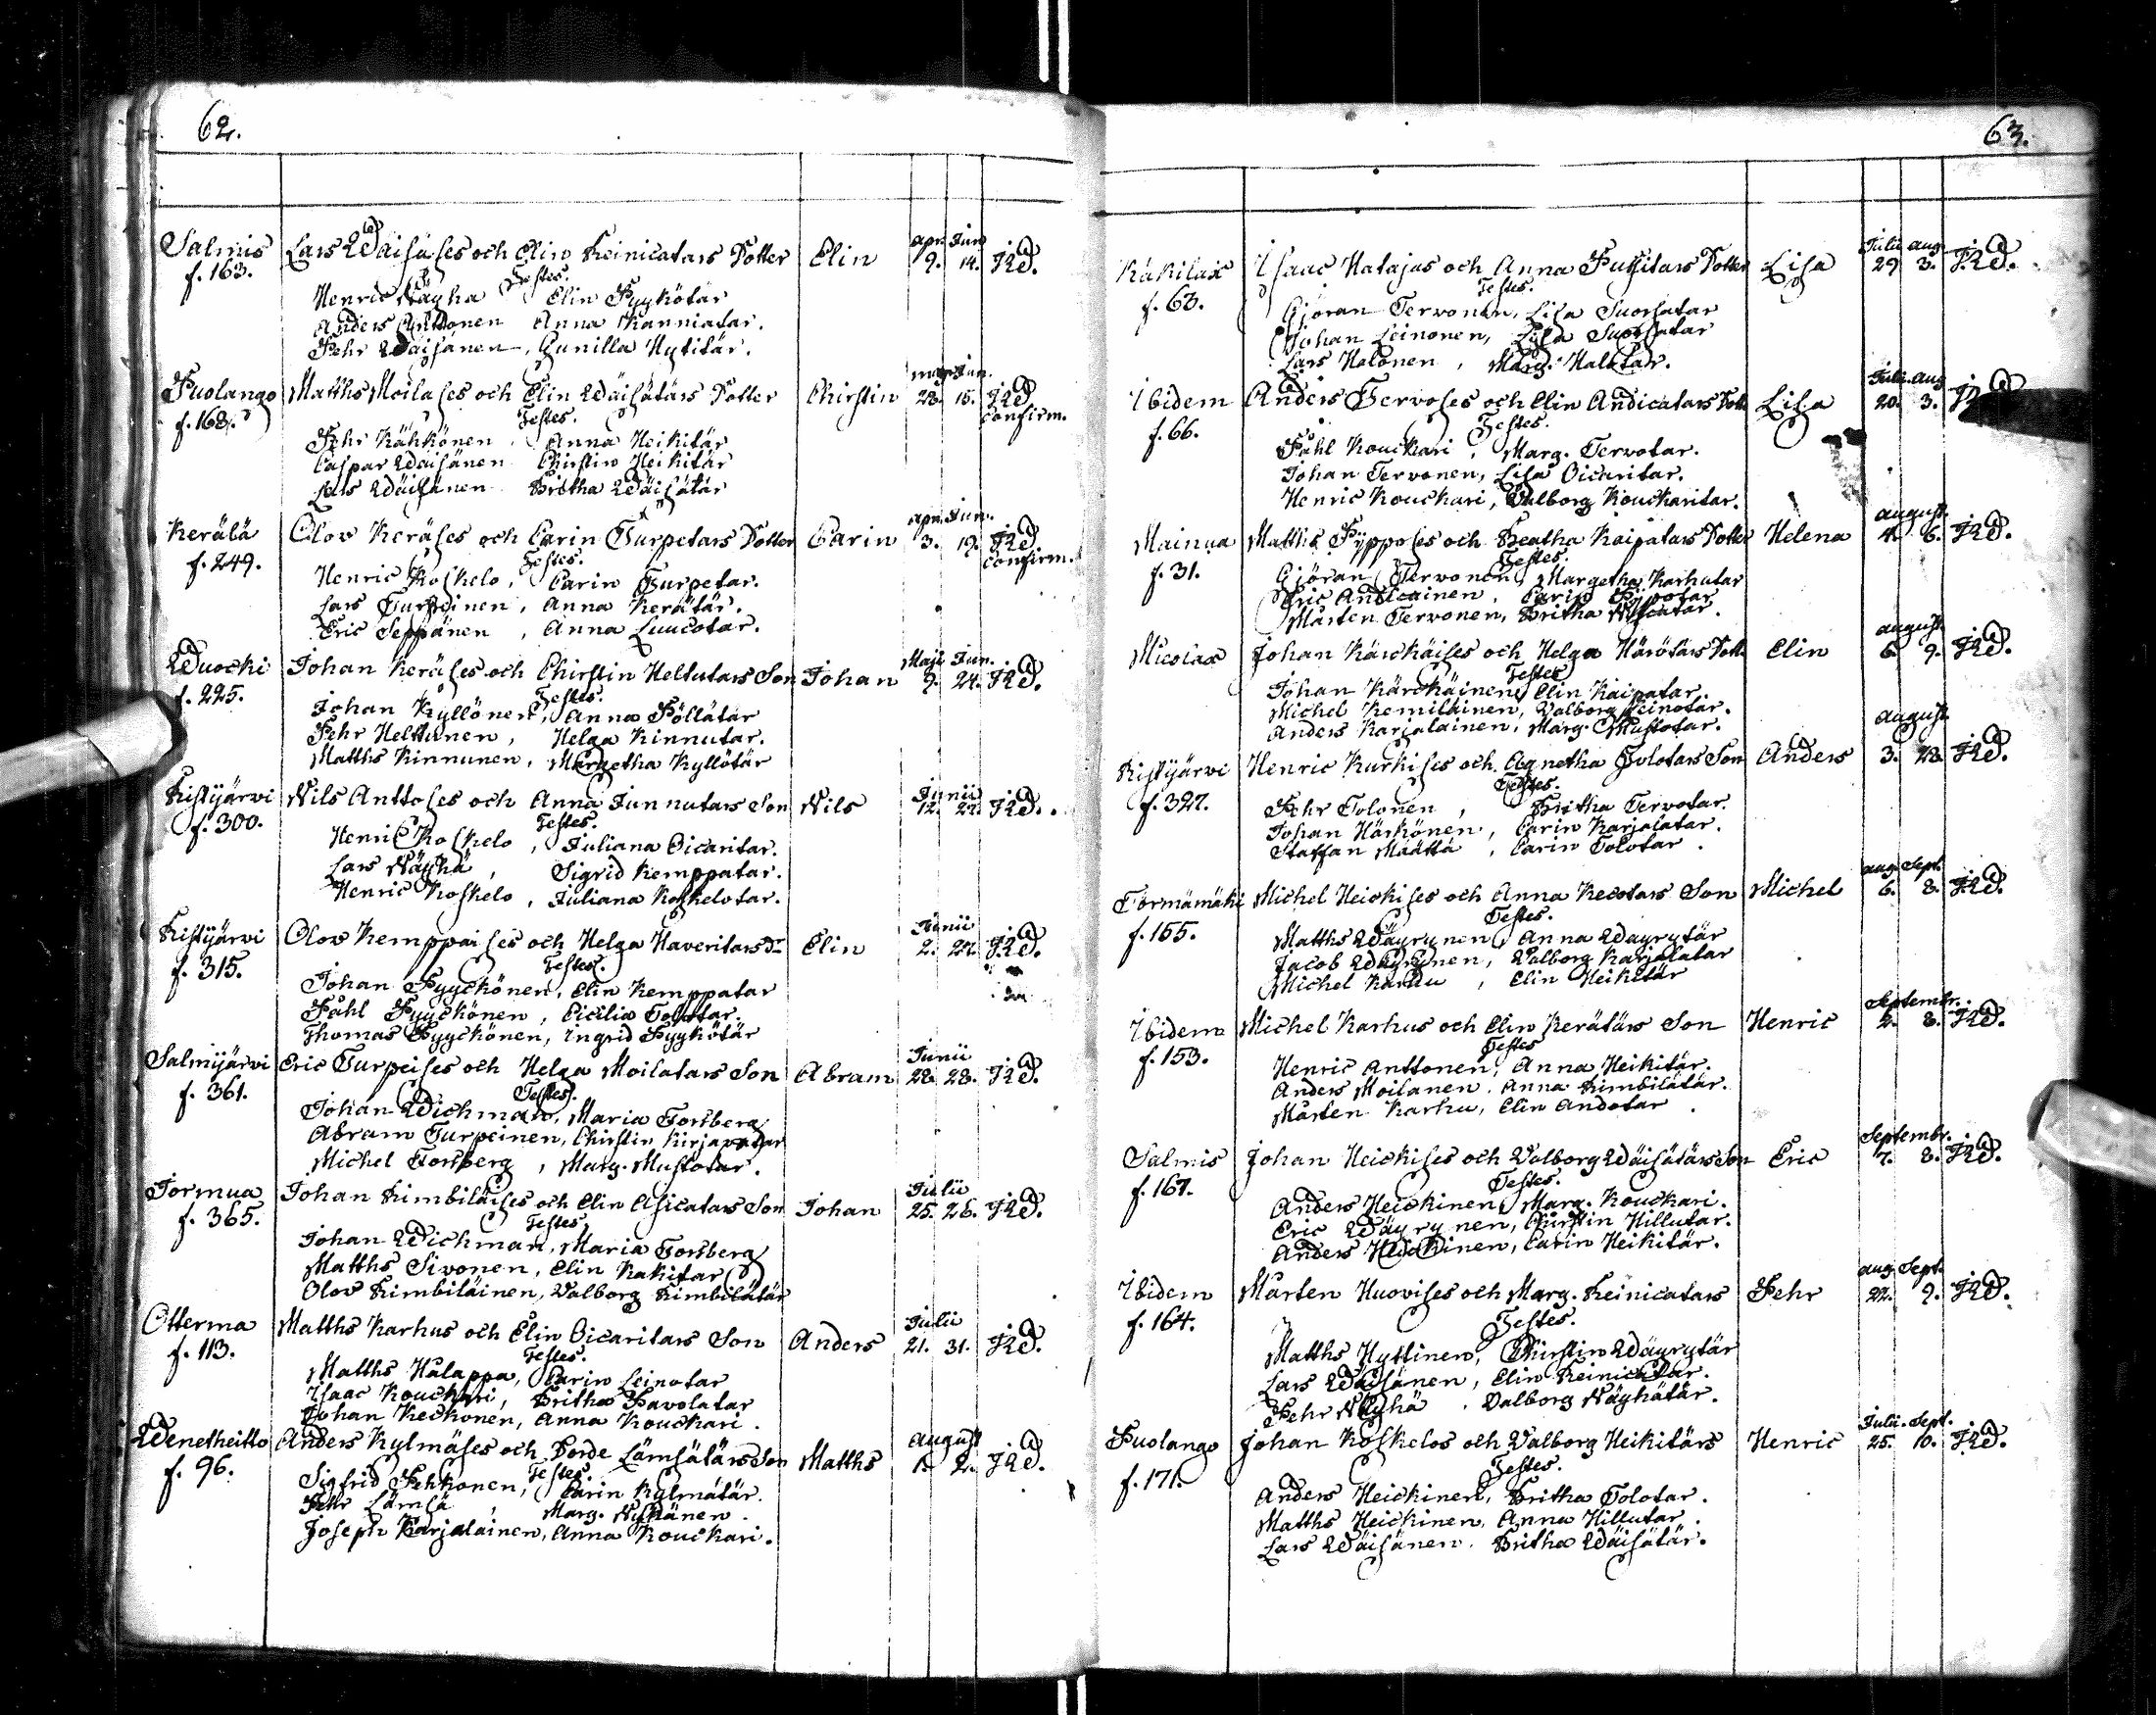 62.
Salmis Lars Wäisäses och Elin Keinicatars Dotter Elin apr. Jun
f. 163. Testes. 9. 14. JRW.
Henric Näyhä Elin Pyykötär
Anders Anttonen Anna Kanniatar.
Pehr Wäisänen, Gunilla Hytitär.
Puolango Matths Moilases och Elin Wäisätärs Dotter Chirstin maji Jun. 28. 15. JRW
f. 168. Testes. confirm.
Pehr Kähkönen Anna Heikitär
Caspar Wäisänen Chirstin Heikitär
Lars Wäisänen Britha Wäisätär
Kerälä Olov Keräses och Carin Turpetars Dotter Carin apr. Jun. 3. 19. JRW
f. 249. Testes. confirm.
Henric Koskelo, Carin Turpetar.
Lars Turpeinen, Anna Kerätär.
Eric Seppänen, Anna Luucotar.
Wuocki Johan Keräses och Chirstin Heltutars Son Johan Maji Jun. 9. 24. JRW.
f. 225. Testes.
Johan Kyllönen, Anna Pöllätär
Pehr Helttunen, Helga Kinnutar.
Matths Kinnunen, Margetha Kyllötär
Ristijärvi Nils Anttoses och Anna Junnutars Son Nils Junii 12. 27. JRW.
f. 300. Testes.
Henric Koskelo, Juliana Oicaritar.
Lars Näyhä, Sigrid Kemppatar.
Henric Koskelo, Juliana Koskelotar.
Ristijärvi Olov Kemppaises och Helga Haveritars Dr Elin Junii 2. 27. JRW.
f. 315. Testes.
Johan Pyyckönen, Elin Kemppatar
Påhl Pyyckönen, Cicilia Tolotar.
Thomas Pyyckönen, Ingrid Pyykötär
Salmijärvi Eric Turpeises och Helga Moilatars Son Abram Junii 28. 28. JRW.
f. 361. Testes.
Johan Wichman, Maria Forsberg
Abram Turpeinen, Chirstin Kirjavatar
Michel Forsberg, Marg. Mustotar.
Jormua Johan Kimbiläises och Elin Asicatars Son Johan Julii 25. 26. JRW.
f. 365. Testes.
Johan Wichman, Maria Forsberg
Matths Sivonen, Elin Kakitar
Olov Kimbiläinen, Valborg Kimbilätär
Otterma Matths Karhus och Elin Oicaritars Son Anders Julii 21. 31. JRW.
f. 113. Testes.
Matths Hälappa, Carin Leinotar
Isaac Kouckari, Britha Pavolatar
Johan Keckonen, Anna Kouckari.
Wenetheitto Anders Kylmäses och Borde Lämsätärs Son Matths August 1. 2. JRW.
f. 96. Testes.
Sigfrid Pehkonen, Carin Kylmätär.
Pehr Lämsä, Marg. Nykänen.
Joseph Karjalainen, Anna Kouckari.
63.
Käkilax Isaac Hatajas och Anna Pussitars Dotter Lisa Julii aug. 29 3. JRW.
f. 63. Testes.
Gjöran Tervonen, Lisa Suorsatar
Johan Leinonen, Lisa Suorsatar
Lars Halonen, Marg. Halotar.
Ibidem Anders Tervoses och Elin Andicatars Dott. Lisa Julii. Aug 20. 3.
f. 66. Testes.
Påhl Kouckari, Marg. Tervotar.
Johan Tervonen, Lisa Oicaritar.
Henric Kouckari, Valborg Kouckaritar.
Mainua Matths Pypposes och Beatha Kaipatars Dotter Helena august. 4. 6. JRW.
f. 31. Testes.
Gjöran Tervonen, Margetha Karhutar
Eric Andicainen, Carin Pypotar
Mårten Tervonen, Britha Nyscatar.
Micolax Johan Kärckäises och Helga Härötärs Dott. Elin august. 6. 9. JRW.
Testes
Johan Kärckäinen, Elin Kaipatar.
Michel Kemiläinen, Valborg Leinotar.
Anders Karjalainen, Marg. Mustotar.
Ristijärvi Henric Kurkises och Agnetha Polotars Son Anders august. 3. 23. JRW.
f. 327. Testes.
Pehr Tolonen, Britha Tervotar.
Johan Härkönen, Carin Karjalatar.
Staffan Määttä, Carin Tolotar.
Törmämäki Michel Heickises och Anna Kecotars Son Michel aug. Sept. 6. 8. JRW.
f. 155. Testes.
Matths Wäyrynen, Anna Wäyrytär
Jacob Wäyrynen, Valborg Karjalatar
Michel Karhu, Elin Heikitär
Ibidem Michel Karhus och Elin Kerätärs Son Henric Septembr. 2. 8. JRW.
f. 153. Testes
Henric Anttonen, Anna Heikitär.
Anders Moilanen. Anna Kimbilätär.
Mårten Karhu, Elin Andotar.
Salmis Johan Heickises och Valborg Wäisätärs Son Eric Septembr. 7. 8. JRW.
f. 167. Testes.
Anders Heickinen, Marg. Kouckari.
Eric Wäyrynen, Chirstin Hillutar.
Anders Heickinen, Carin Heikitär.
Ibidem Mårten Huovises och Marg. Keinicatars Pehr aug. Sept. 22. 9. JRW.
f. 164. Testes.
Matths Hyttinen, Chirstin Wäyrytär
Lars Wäisänen, Elin Keinicatar.
Pehr Näyhä. Valborg Näyhätär.
Puolango Johan Koskelos och Valborg Heikitärs Henric Julii. Sept. 25. 10. JRW.
f. 171. Testes.
Anders Heickinen, Britha Tolotar.
Matths Heickinen, Anna Hillutar.
Lars Wäisänen. Britha Wäisätär.